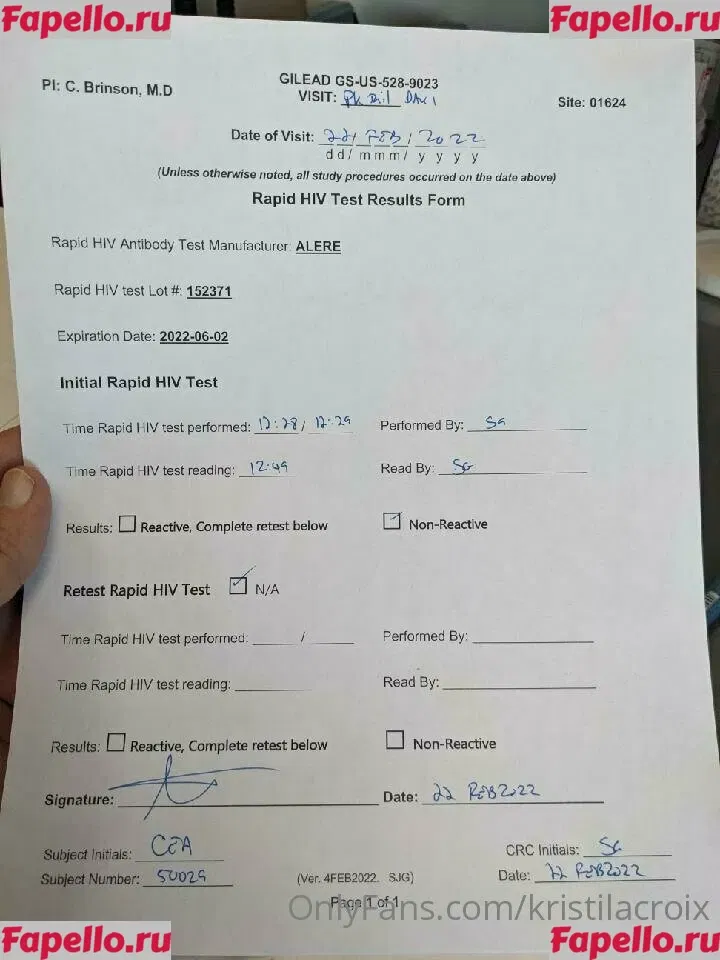 Fapello.ru Fapello.ru
PI: C. Brinson, M.D
GILEAD GS-US-528-9023
VISIT: DAY 1
Site: 01624
Date of Visit: 22/ FEB / 2022
dd/ mmm/ y y y y
(Unless otherwise noted, all study procedures occurred on the date above)
Rapid HIV Test Results Form
Rapid HIV Antibody Test Manufacturer: ALERE
Rapid HIV test Lot #: 152371
Expiration Date: 2022-06-02
Initial Rapid HIV Test
Time Rapid HIV test performed: 12:28 / 12:29 Performed By: SG
Time Rapid HIV test reading: 12:49 Read By: SG
Results: Reactive, Complete retest below Non-Reactive
Retest Rapid HIV Test N/A
Time Rapid HIV test performed: / Performed By:
Time Rapid HIV test reading: Read By:
Results: Reactive, Complete retest below Non-Reactive
Signature: Date: 22 FEB2022
Subject Initials: CEA CRC Initials: SG
Subject Number: 50029 (Ver. 4FEB2022. SJG) Date: 22 FEB2022
Page 1 of 1
OnlyFans.com/kristilacroix
Fapello.ru Fapello.ru